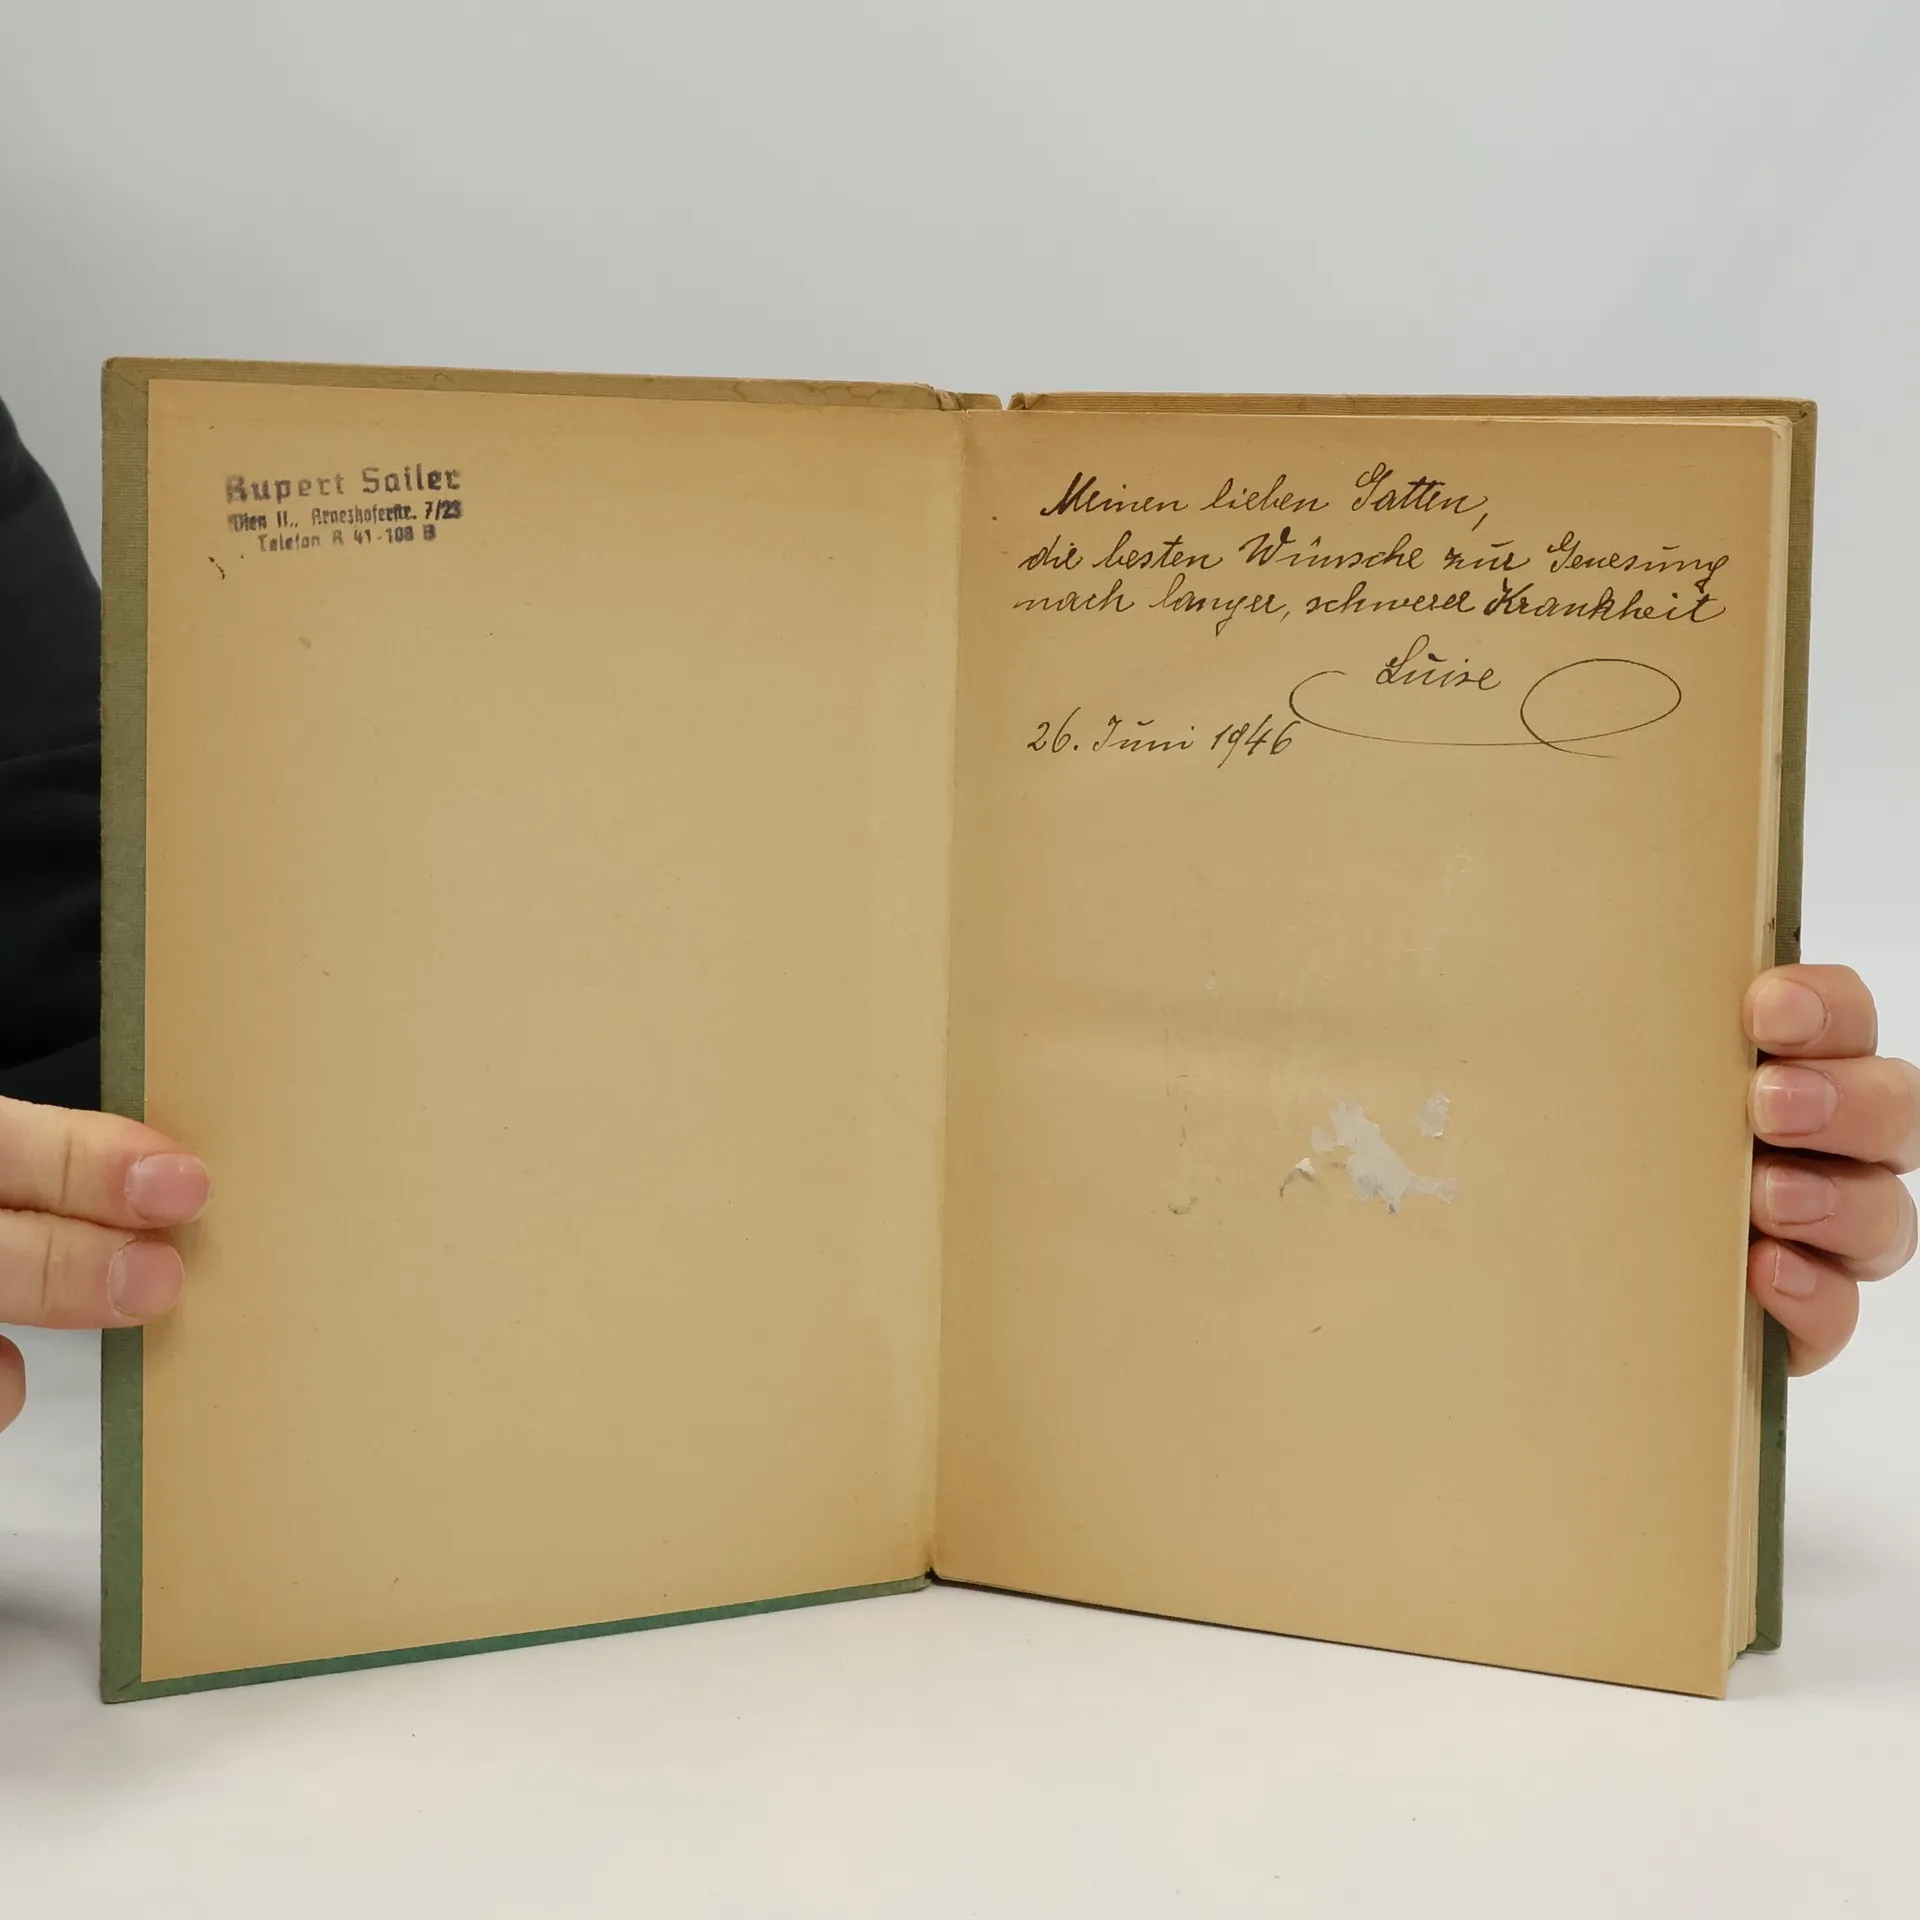 Rupert Sailer
Wien II., Arnezhoferstr. 7/23
Telefon R 41-108 B
Meinen lieben Gatten,
die besten Wünsche zur Genesung
nach langer, schwerer Krankheit
Luise
26. Juni 1946